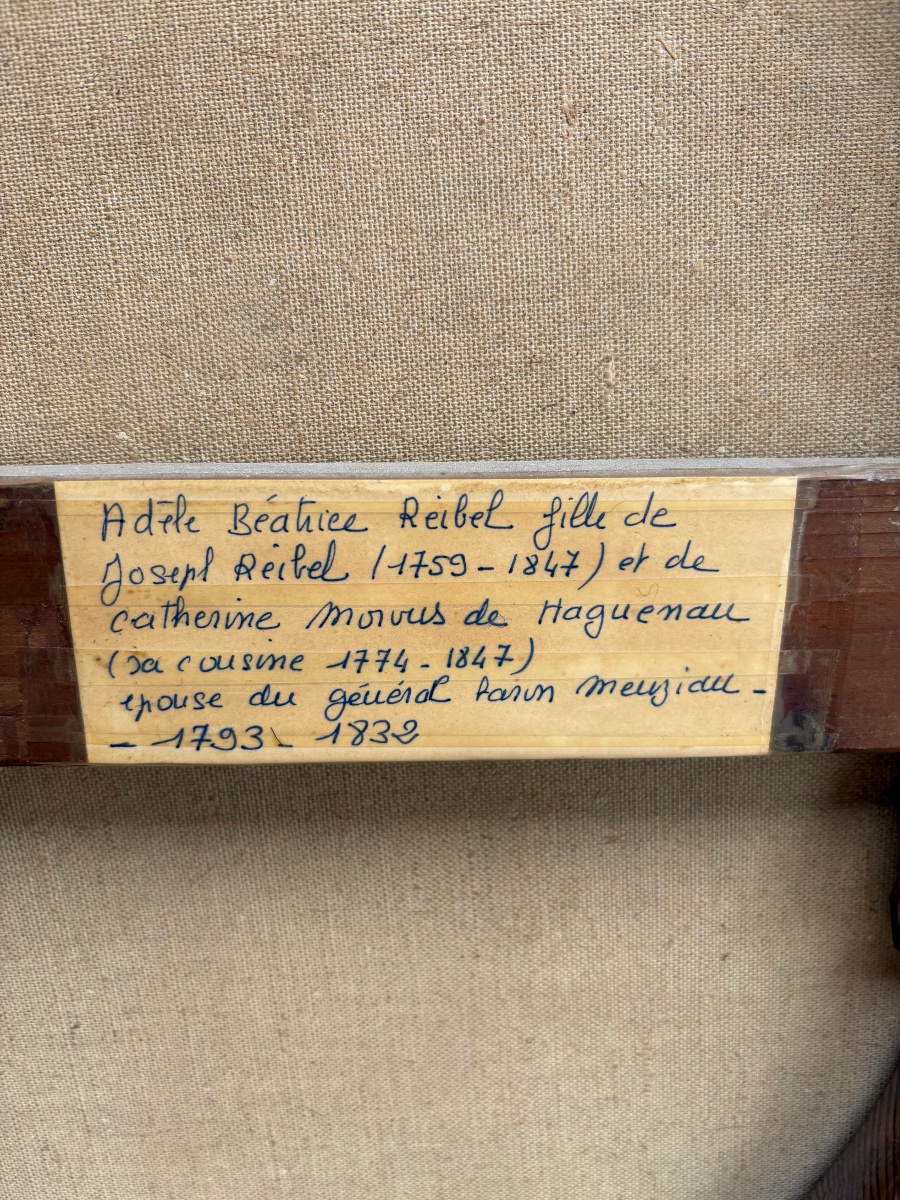 Adèle Béatrice Reibel fille de
Joseph Reibel (1759-1847) et de
Catherine Morvus de Haguenau
(sa cousine 1774-1847)
epouse du général baron Meuziau -
- 1793 - 1832